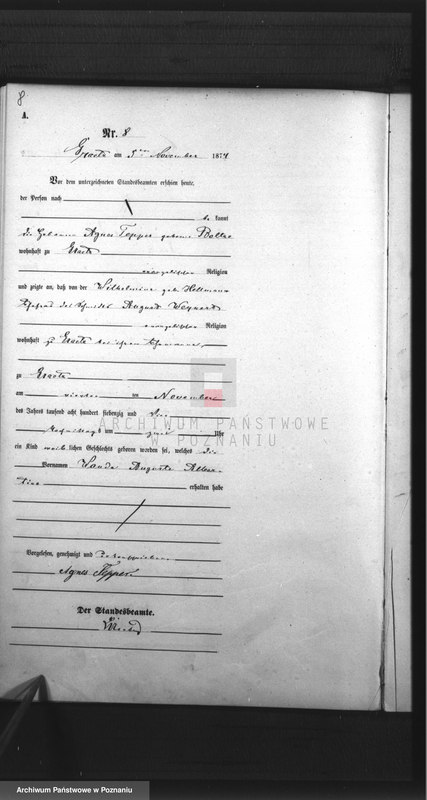 8
A.
Nr. 8
am 5ten November 1874
Vor dem unterzeichneten Standesbeamten erschien heute,
der Person nach
kannt
die Hebamme Agnes Tepper geborne
wohnhaft zu
evangelischer Religion
und zeigte an, daß von der Wilhelmine geb. Hellmann
Ehefrau des August
evangelischer Religion
wohnhaft zu
zu
am vierten ten November
des Jahres tausend acht hundert siebenzig und vier
Nachmittags um Uhr
ein Kind weiblichen Geschlechts geboren worden sei, welches die
Vornamen Wanda Auguste Alber-
tine erhalten habe
Vorgelesen, genehmigt und unterschrieben
Agnes Tepper
Der Standesbeamte.
ARCHIWUM PAŃSTWOWE
W POZNANIU
Archiwum Państwowe w Poznaniu